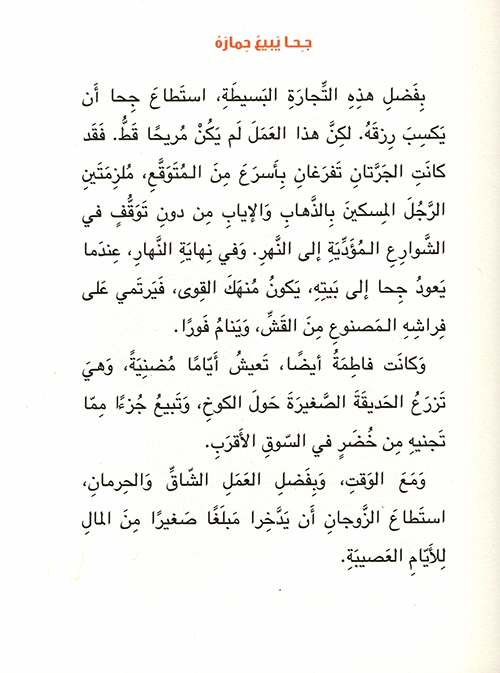 جحا يَبيعُ حِمارَهُ
بِفَضلِ هذِهِ التِّجارَةِ البَسيطَةِ، استَطاعَ جِحا أَن
يَكسِبَ رِزقَهُ. لكِنَّ هذا العَمَلَ لَم يَكُنْ مُريحًا قَطُّ. فَقَد
كانَتِ الجَرَّتانِ تَفرَغانِ بِأَسرَعَ مِنَ المُتَوَقَّعِ، مُلزِمَتَينِ
الرَّجُلَ المِسكينَ بِالذَّهابِ وَالإيابِ مِن دونِ تَوَقُّفٍ في
الشَّوارِعِ المُؤَدِّيَةِ إلى النَّهرِ. وَفي نِهايَةِ النَّهارِ، عِندَما
يَعودُ جِحا إلى بَيتِهِ، يَكونُ مُنهَكَ القِوى، فَيَرتَمي عَلى
فِراشِهِ المَصنوعِ مِنَ القَشِّ، وَيَنامُ فَورًا.
وَكانَت فاطِمَةُ أيضًا، تَعيشُ أَيّامًا مُضنِيَةً، وَهيَ
تَزرَعُ الحَديقَةَ الصَّغيرَةَ حَولَ الكوخِ، وَتَبيعُ جُزءًا مِمّا
تَجنيهِ مِن خُضَرٍ في السّوقِ الأَقرَبِ.
وَمَعَ الوَقتِ، وَبِفَضلِ العَمَلِ الشّاقِّ وَالحِرمانِ،
استَطاعَ الزَّوجانِ أَن يَدَّخِرا مَبلَغًا صَغيرًا مِنَ المالِ
لِلأَيّامِ العَصيبَةِ.